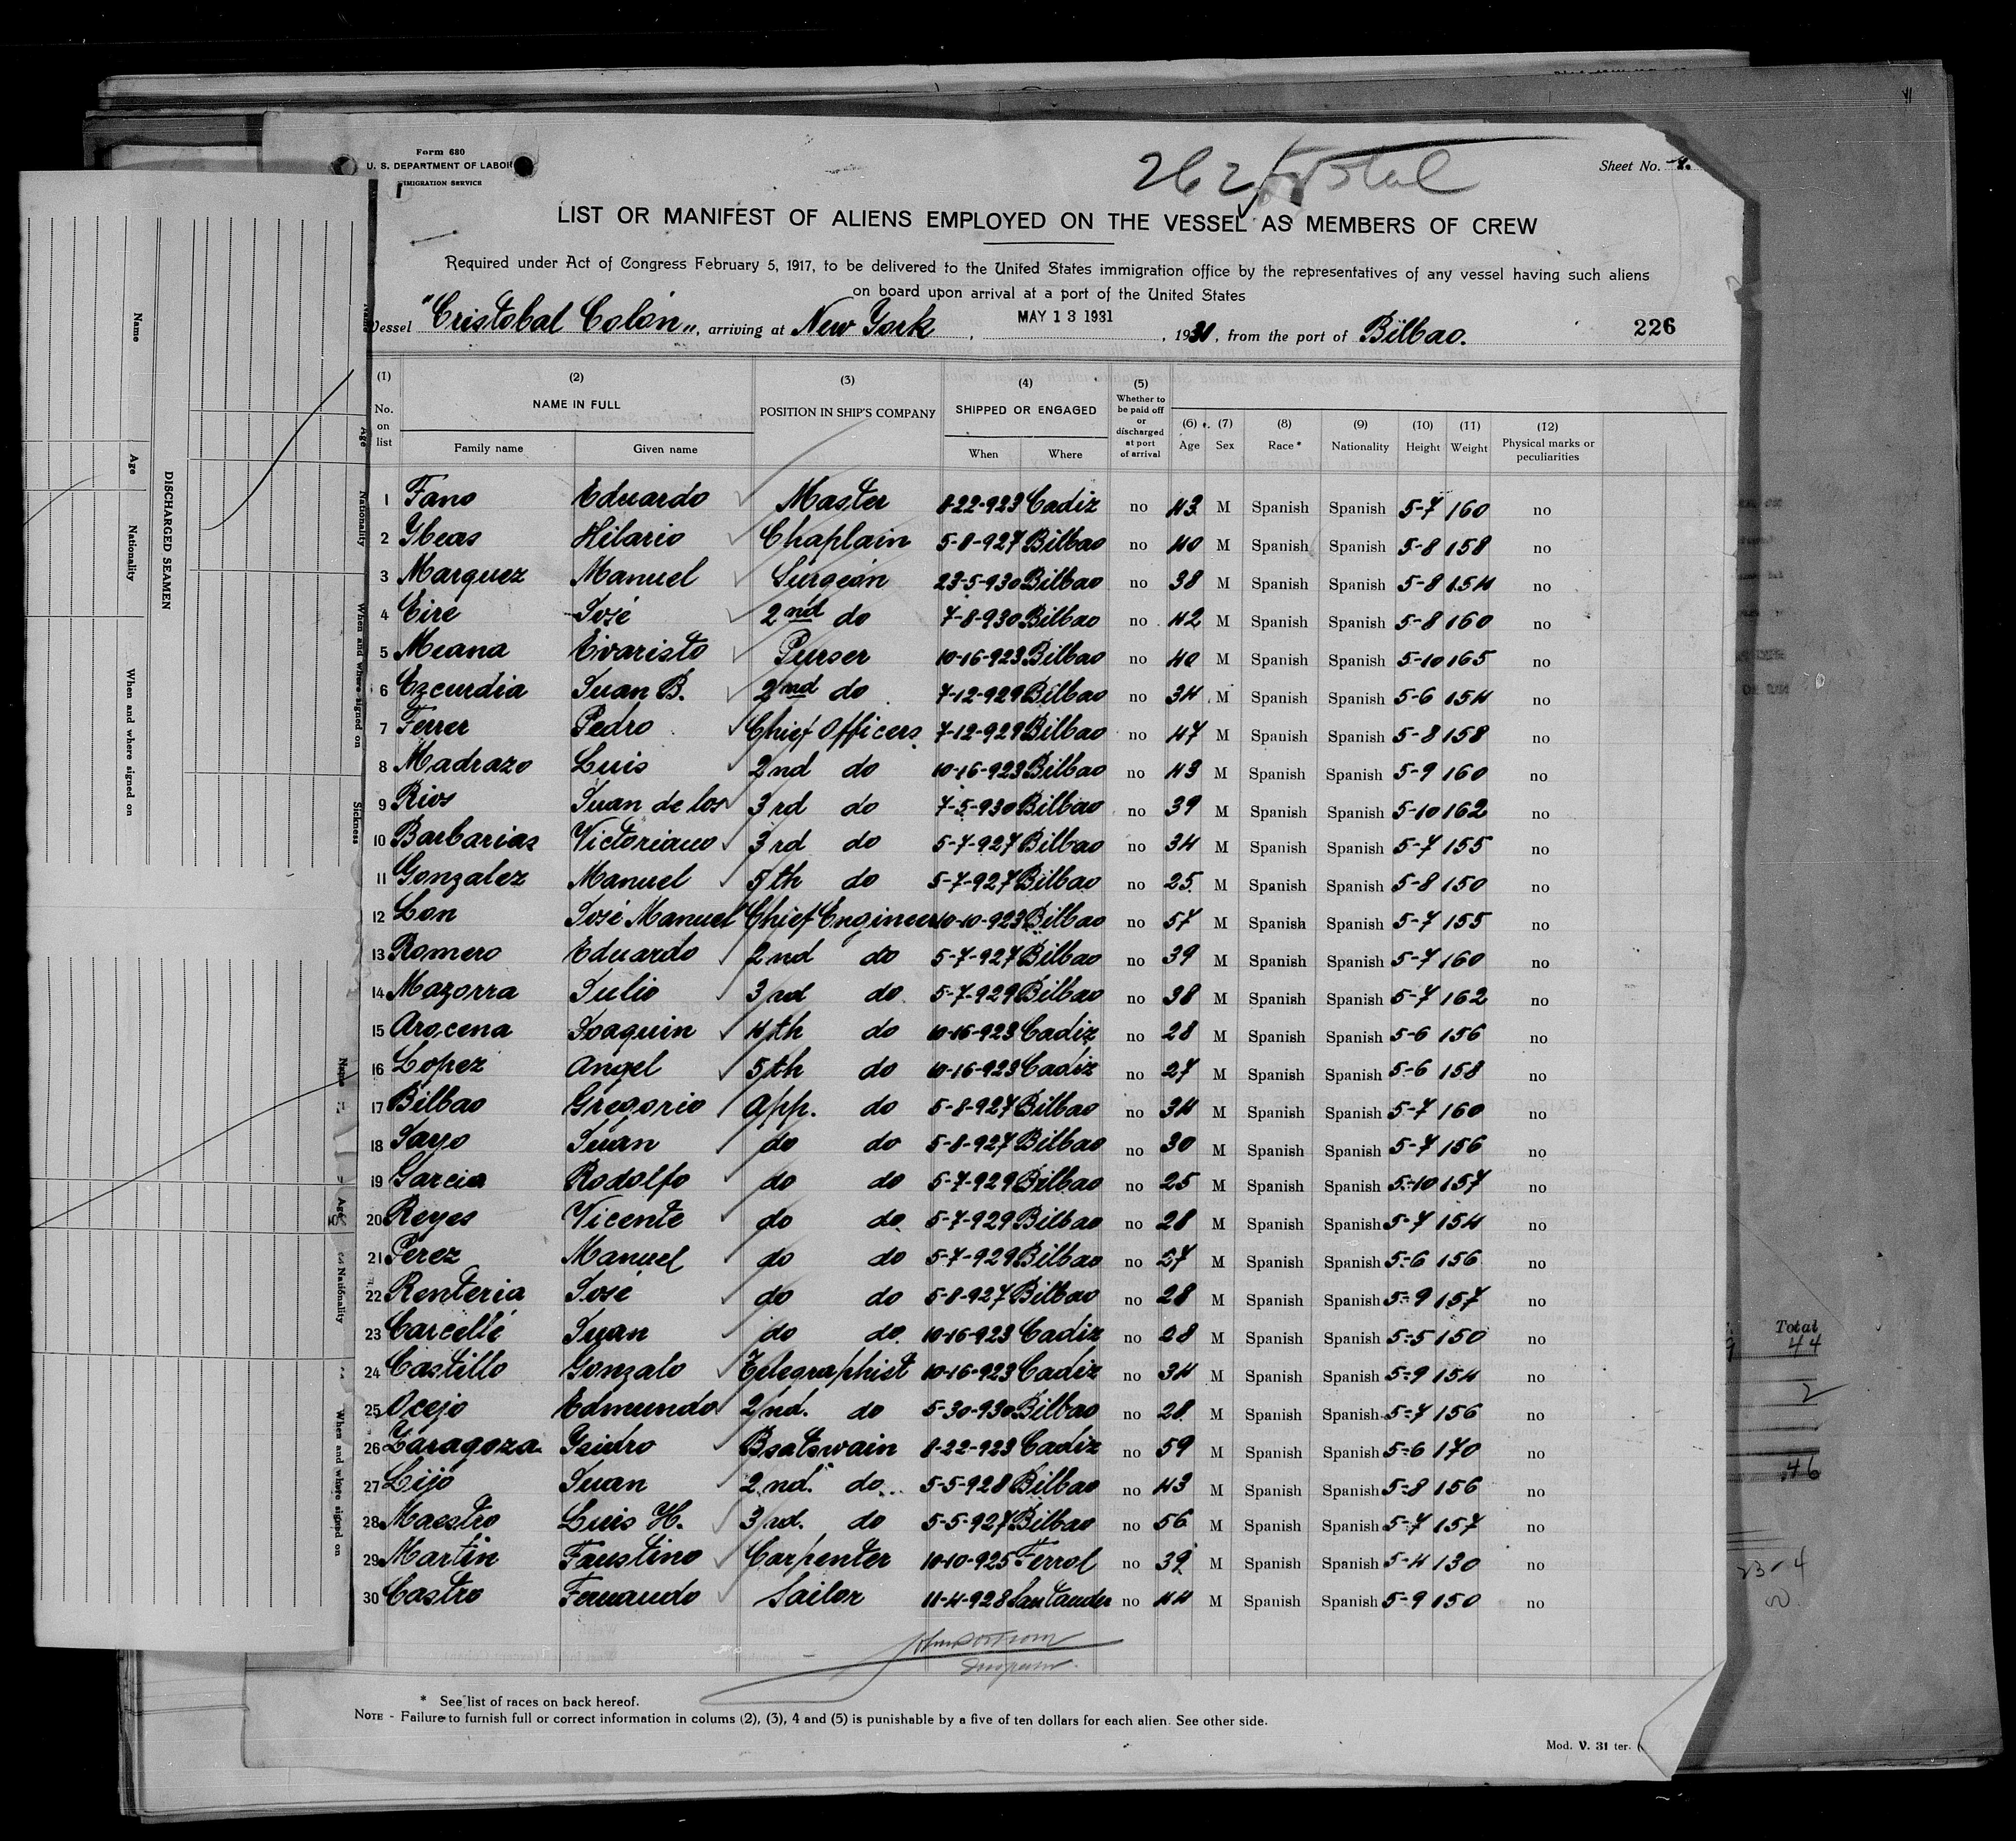 Form 680
U. S. DEPARTMENT OF LABOR
IMMIGRATION SERVICE
262 Total
Sheet No. 1.
LIST OR MANIFEST OF ALIENS EMPLOYED ON THE VESSEL AS MEMBERS OF CREW
Required under Act of Congress February 5, 1917, to be delivered to the United States immigration office by the representatives of any vessel having such aliens
on board upon arrival at a port of the United States
Vessel "Cristobal Colón", arriving at New York, MAY 13 1931, 1931, from the port of Bilbao. 226
(1) No. on list (2) NAME IN FULL Family name Given name (3) POSITION IN SHIP'S COMPANY (4) SHIPPED OR ENGAGED When Where (5) Whether to be paid off or discharged at port of arrival (6) Age (7) Sex (8) Race * (9) Nationality (10) Height (11) Weight (12) Physical marks or peculiarities
1 Fano Eduardo Master 8-22-923 Cadiz no 43 M Spanish Spanish 5-7 160 no
2 Ybeas Hilario Chaplain 5-8-927 Bilbao no 40 M Spanish Spanish 5-8 158 no
3 Marquez Manuel Surgeon 23-5-930 Bilbao no 38 M Spanish Spanish 5-8 154 no
4 Eire José 2nd do 7-8-930 Bilbao no 42 M Spanish Spanish 5-8 160 no
5 Meana Evaristo Purser 10-16-923 Bilbao no 40 M Spanish Spanish 5-10 165 no
6 Ezcurdia Juan B. 2nd do 7-12-929 Bilbao no 34 M Spanish Spanish 5-6 154 no
7 Ferrer Pedro Chief Officers 7-12-929 Bilbao no 47 M Spanish Spanish 5-8 158 no
8 Madrazo Luis 2nd do 10-16-923 Bilbao no 43 M Spanish Spanish 5-9 160 no
9 Rios Juan de los 3rd do 7-5-930 Bilbao no 39 M Spanish Spanish 5-10 162 no
10 Barbarias Victoriano 3rd do 5-7-927 Bilbao no 34 M Spanish Spanish 5-7 155 no
11 Gonzalez Manuel 5th do 5-7-927 Bilbao no 25 M Spanish Spanish 5-8 150 no
12 Lon José Manuel Chief Engineer 10-10-923 Bilbao no 57 M Spanish Spanish 5-7 155 no
13 Romero Eduardo 2nd do 5-7-927 Bilbao no 39 M Spanish Spanish 5-7 160 no
14 Mazorra Julio 3rd do 5-7-929 Bilbao no 38 M Spanish Spanish 5-7 162 no
15 Arocena Joaquin 4th do 10-16-923 Cadiz no 28 M Spanish Spanish 5-6 156 no
16 Lopez Angel 5th do 10-16-923 Cadiz no 27 M Spanish Spanish 5-6 158 no
17 Bilbao Gregorio App. do 5-8-927 Bilbao no 34 M Spanish Spanish 5-7 160 no
18 Sayo Juan do do 5-8-927 Bilbao no 30 M Spanish Spanish 5-7 156 no
19 Garcia Rodolfo do do 5-7-929 Bilbao no 25 M Spanish Spanish 5-10 157 no
20 Reyes Vicente do do 5-7-929 Bilbao no 28 M Spanish Spanish 5-7 154 no
21 Perez Manuel do do 5-7-929 Bilbao no 27 M Spanish Spanish 5-6 156 no
22 Renteria José do do 5-8-927 Bilbao no 28 M Spanish Spanish 5-9 157 no
23 Carcellé Juan do do 10-16-923 Cadiz no 28 M Spanish Spanish 5-5 150 no
24 Castillo Gonzalo Telegraphist 10-16-923 Cadiz no 34 M Spanish Spanish 5-9 154 no
25 Ocejo Edmundo 2nd. do 5-30-930 Bilbao no 28 M Spanish Spanish 5-7 156 no
26 Zaragoza Ysidro Boatswain 8-22-923 Cadiz no 59 M Spanish Spanish 5-6 170 no
27 Lijo Juan 2nd. do 5-5-928 Bilbao no 43 M Spanish Spanish 5-8 156 no
28 Maestro Luis H. 3rd. do 5-5-927 Bilbao no 56 M Spanish Spanish 5-7 157 no
29 Martin Faustino Carpenter 10-10-925 Ferrol no 39 M Spanish Spanish 5-4 130 no
30 Castro Fernando Sailor 11-4-928 Santander no 44 M Spanish Spanish 5-9 150 no
* See list of races on back hereof.
NOTE - Failure to furnish full or correct information in colums (2), (3), 4 and (5) is punishable by a five of ten dollars for each alien. See other side.
Mod. V. 31 ter.
Name
Age
Nationality
When and where signed on
DISCHARGED SEAMEN
Age
Nationality
When and where signed on
Sickness
Name
Age
Nationality
When and where signed on
Total
44
2
46